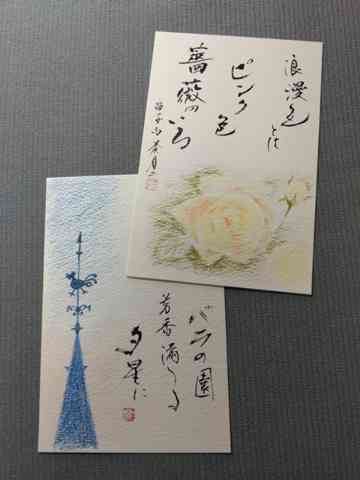 浪漫色とは
ピンク色
薔薇のいろ
バラの園
芳香満つる
夕星に